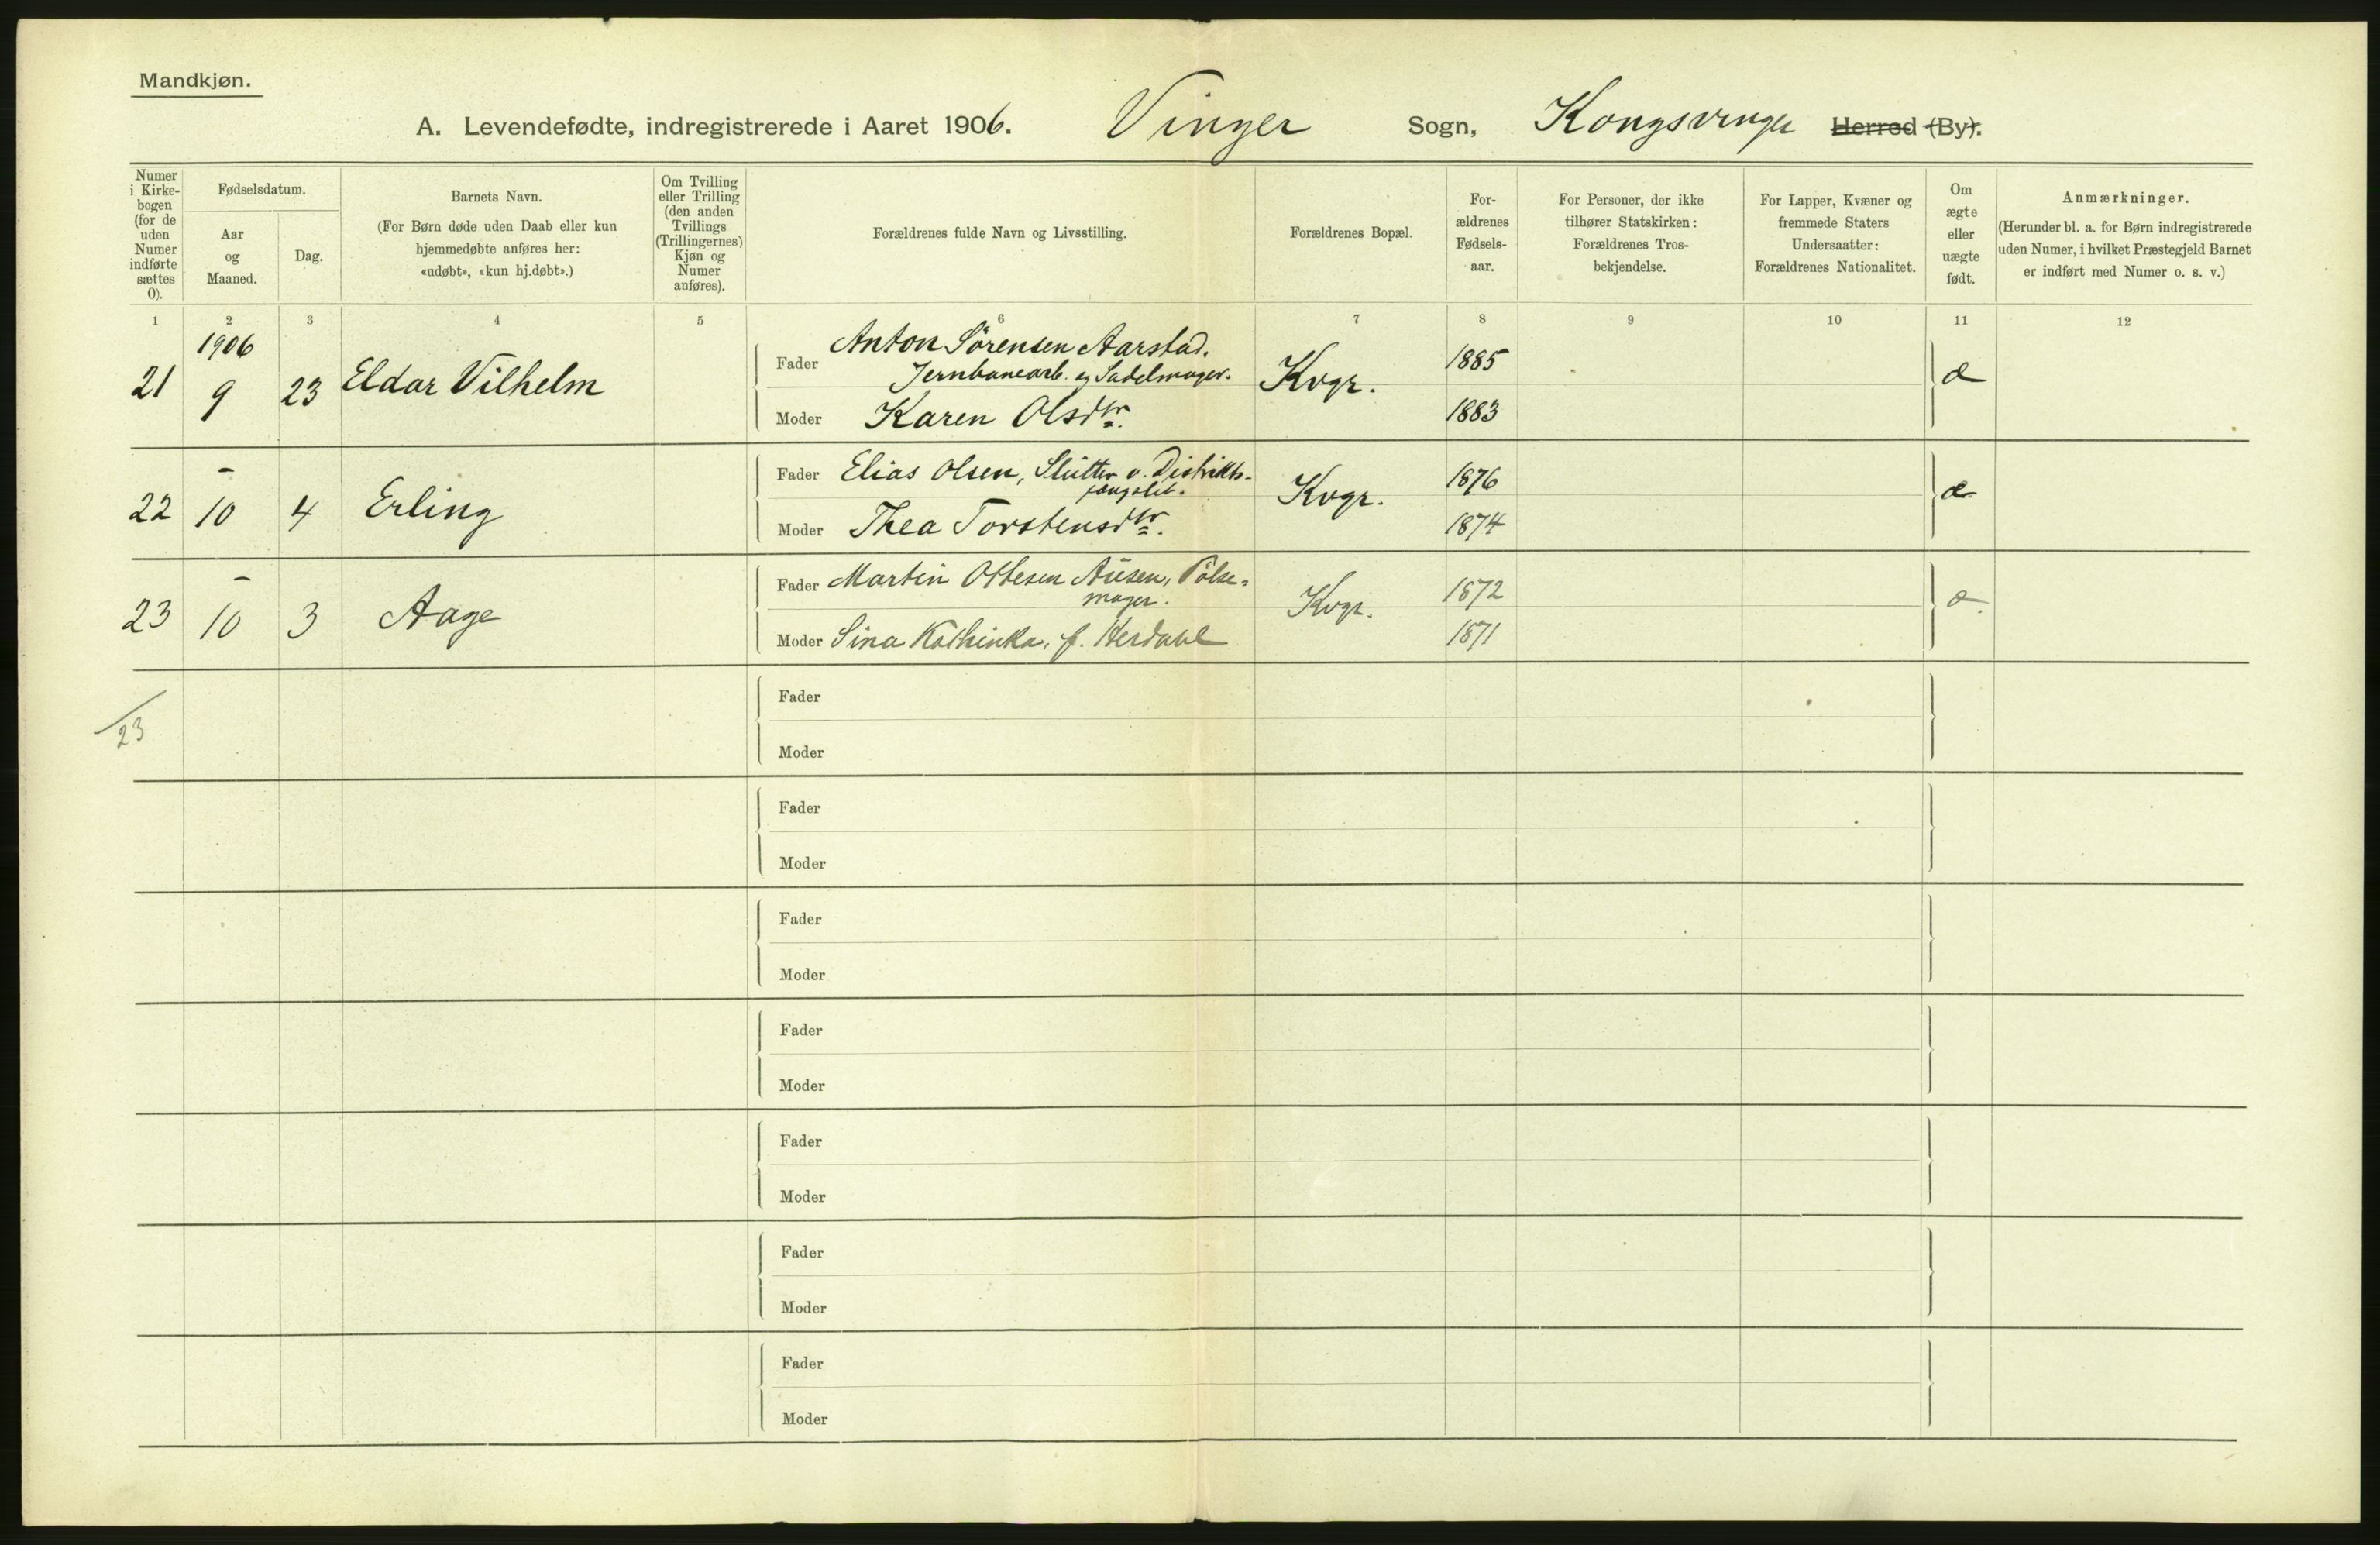 Mandkjøn.
A. Levendefødte, indregistrerede i Aaret 1906. Vinger Sogn, Kongsvinger Herred (By).
Numer i Kirkebogen (for de uden Numer indførte sættes 0).
Fødselsdatum.
Aar og Maaned.
Dag.
Barnets Navn.
(For Børn døde uden Daab eller kun
hjemmedøbte anføres her:
«udøbt», «kun hj.døbt».)
Om Tvilling
eller Trilling
(den anden
Tvillings
(Trillingernes)
Kjøn og
Numer
anføres).
Forældrenes fulde Navn og Livsstilling.
Forældrenes Bopæl.
For-
ældrenes
Fødsels-
aar.
For Personer, der ikke
tilhører Statskirken:
Forældrenes Tros-
bekjendelse.
For Lapper, Kvæner og
fremmede Staters
Undersaatter:
Forældrenes Nationalitet.
Om
ægte
eller
uægte
født.
Anmærkninger.
(Herunder bl. a. for Børn indregistrerede
uden Numer, i hvilket Præstegjeld Barnet
er indført med Numer o. s. v.)
1 2 3 4 5 6 7 8 9 10 11 12
1906
21 9 23 Eldar Vilhelm
Fader Anton Sörensen Aarstad.
Jernbanearb. og Sadelmager.
Kvgr. 1885 æ
Moder Karen Olsdtr. 1883
22 - 10 4 Erling
Fader Elias Olsen, Slutter v. Distrikts-
fængslet.
Kvgr. 1876 æ
Moder Thea Torstensdtr. 1874
23 - 10 3 Aage
Fader Martin Ottesen Ausen, Pölse-
mager.
Kvgr. 1872 æ.
Moder Sina Kathinka, f. Herdahl 1871
23
Fader
Moder
Fader
Moder
Fader
Moder
Fader
Moder
Fader
Moder
Fader
Moder
Fader
Moder